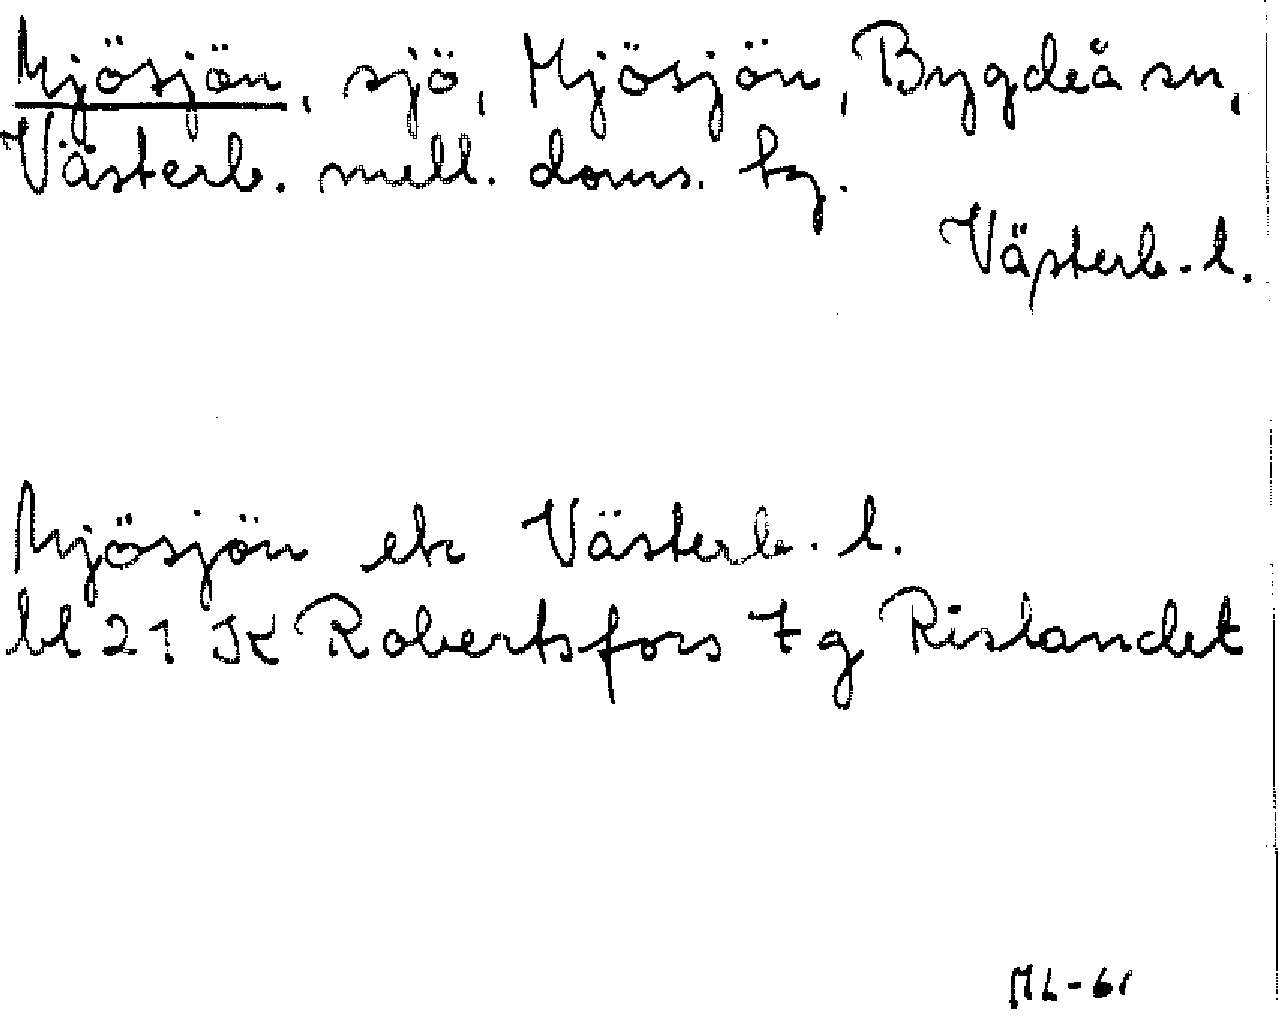 Mjösjön, sjö, Mjösjön, Bygdeå sn,
Västerb. mell. doms. tg.
Västerb. l.
Mjösjön ek Västerb. l.
bl 21 JK Robertsfors 7 g Rislandet
ML-61